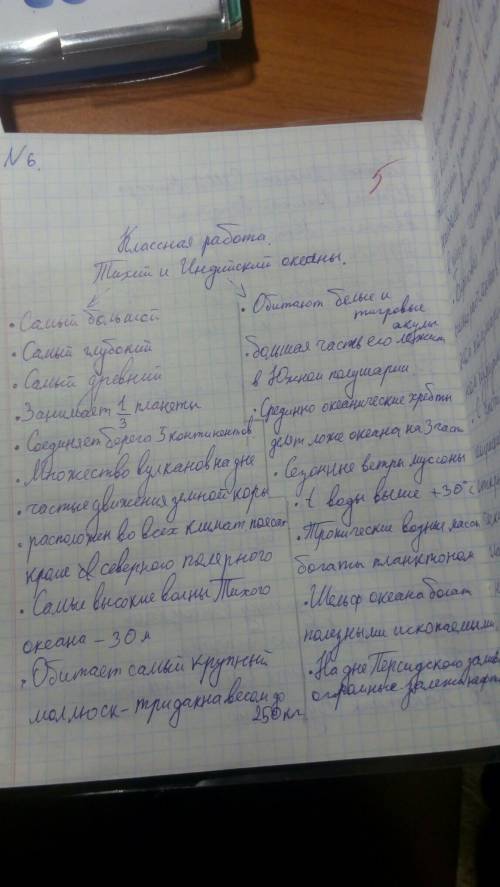 N 6.
5
Классная работа.
Тихий и Индийский океаны.
• Самый большой
• Самый глубокий
• Самый древний
• Занимает 1/3 планеты
• Соединяет берега 5 континентов
• Множество вулканов на дне
• частые движения земной коры
• расположен во всех климат поясах
кроме северного полярного
• Самые высокие волны Тихого
океана – 30 м
• Обитает самый крупный
моллюск – тридакна весом до
250 кг.
• Обитают белые и
тигровые
акулы
• большая часть его лежит
в Южном полушарии
• Срединно океанические хребты
делят ложе океана на 3 части
• Сезонные ветры муссоны
• t воды выше +30°С
• Тропические водные массы
богаты планктоном
• Шельф океана богат
полезными ископаемыми
• На дне Персидского залива
огромные залежи нефти